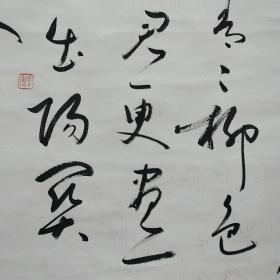 青〻柳色
君更盡一
出陽關